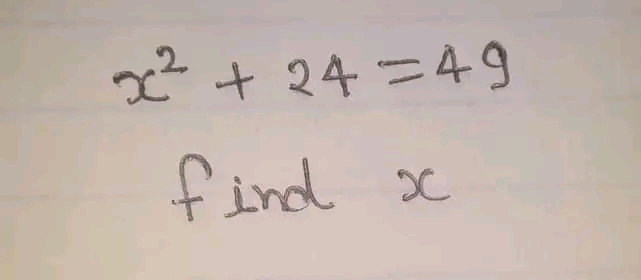 x² + 24 = 49
find x